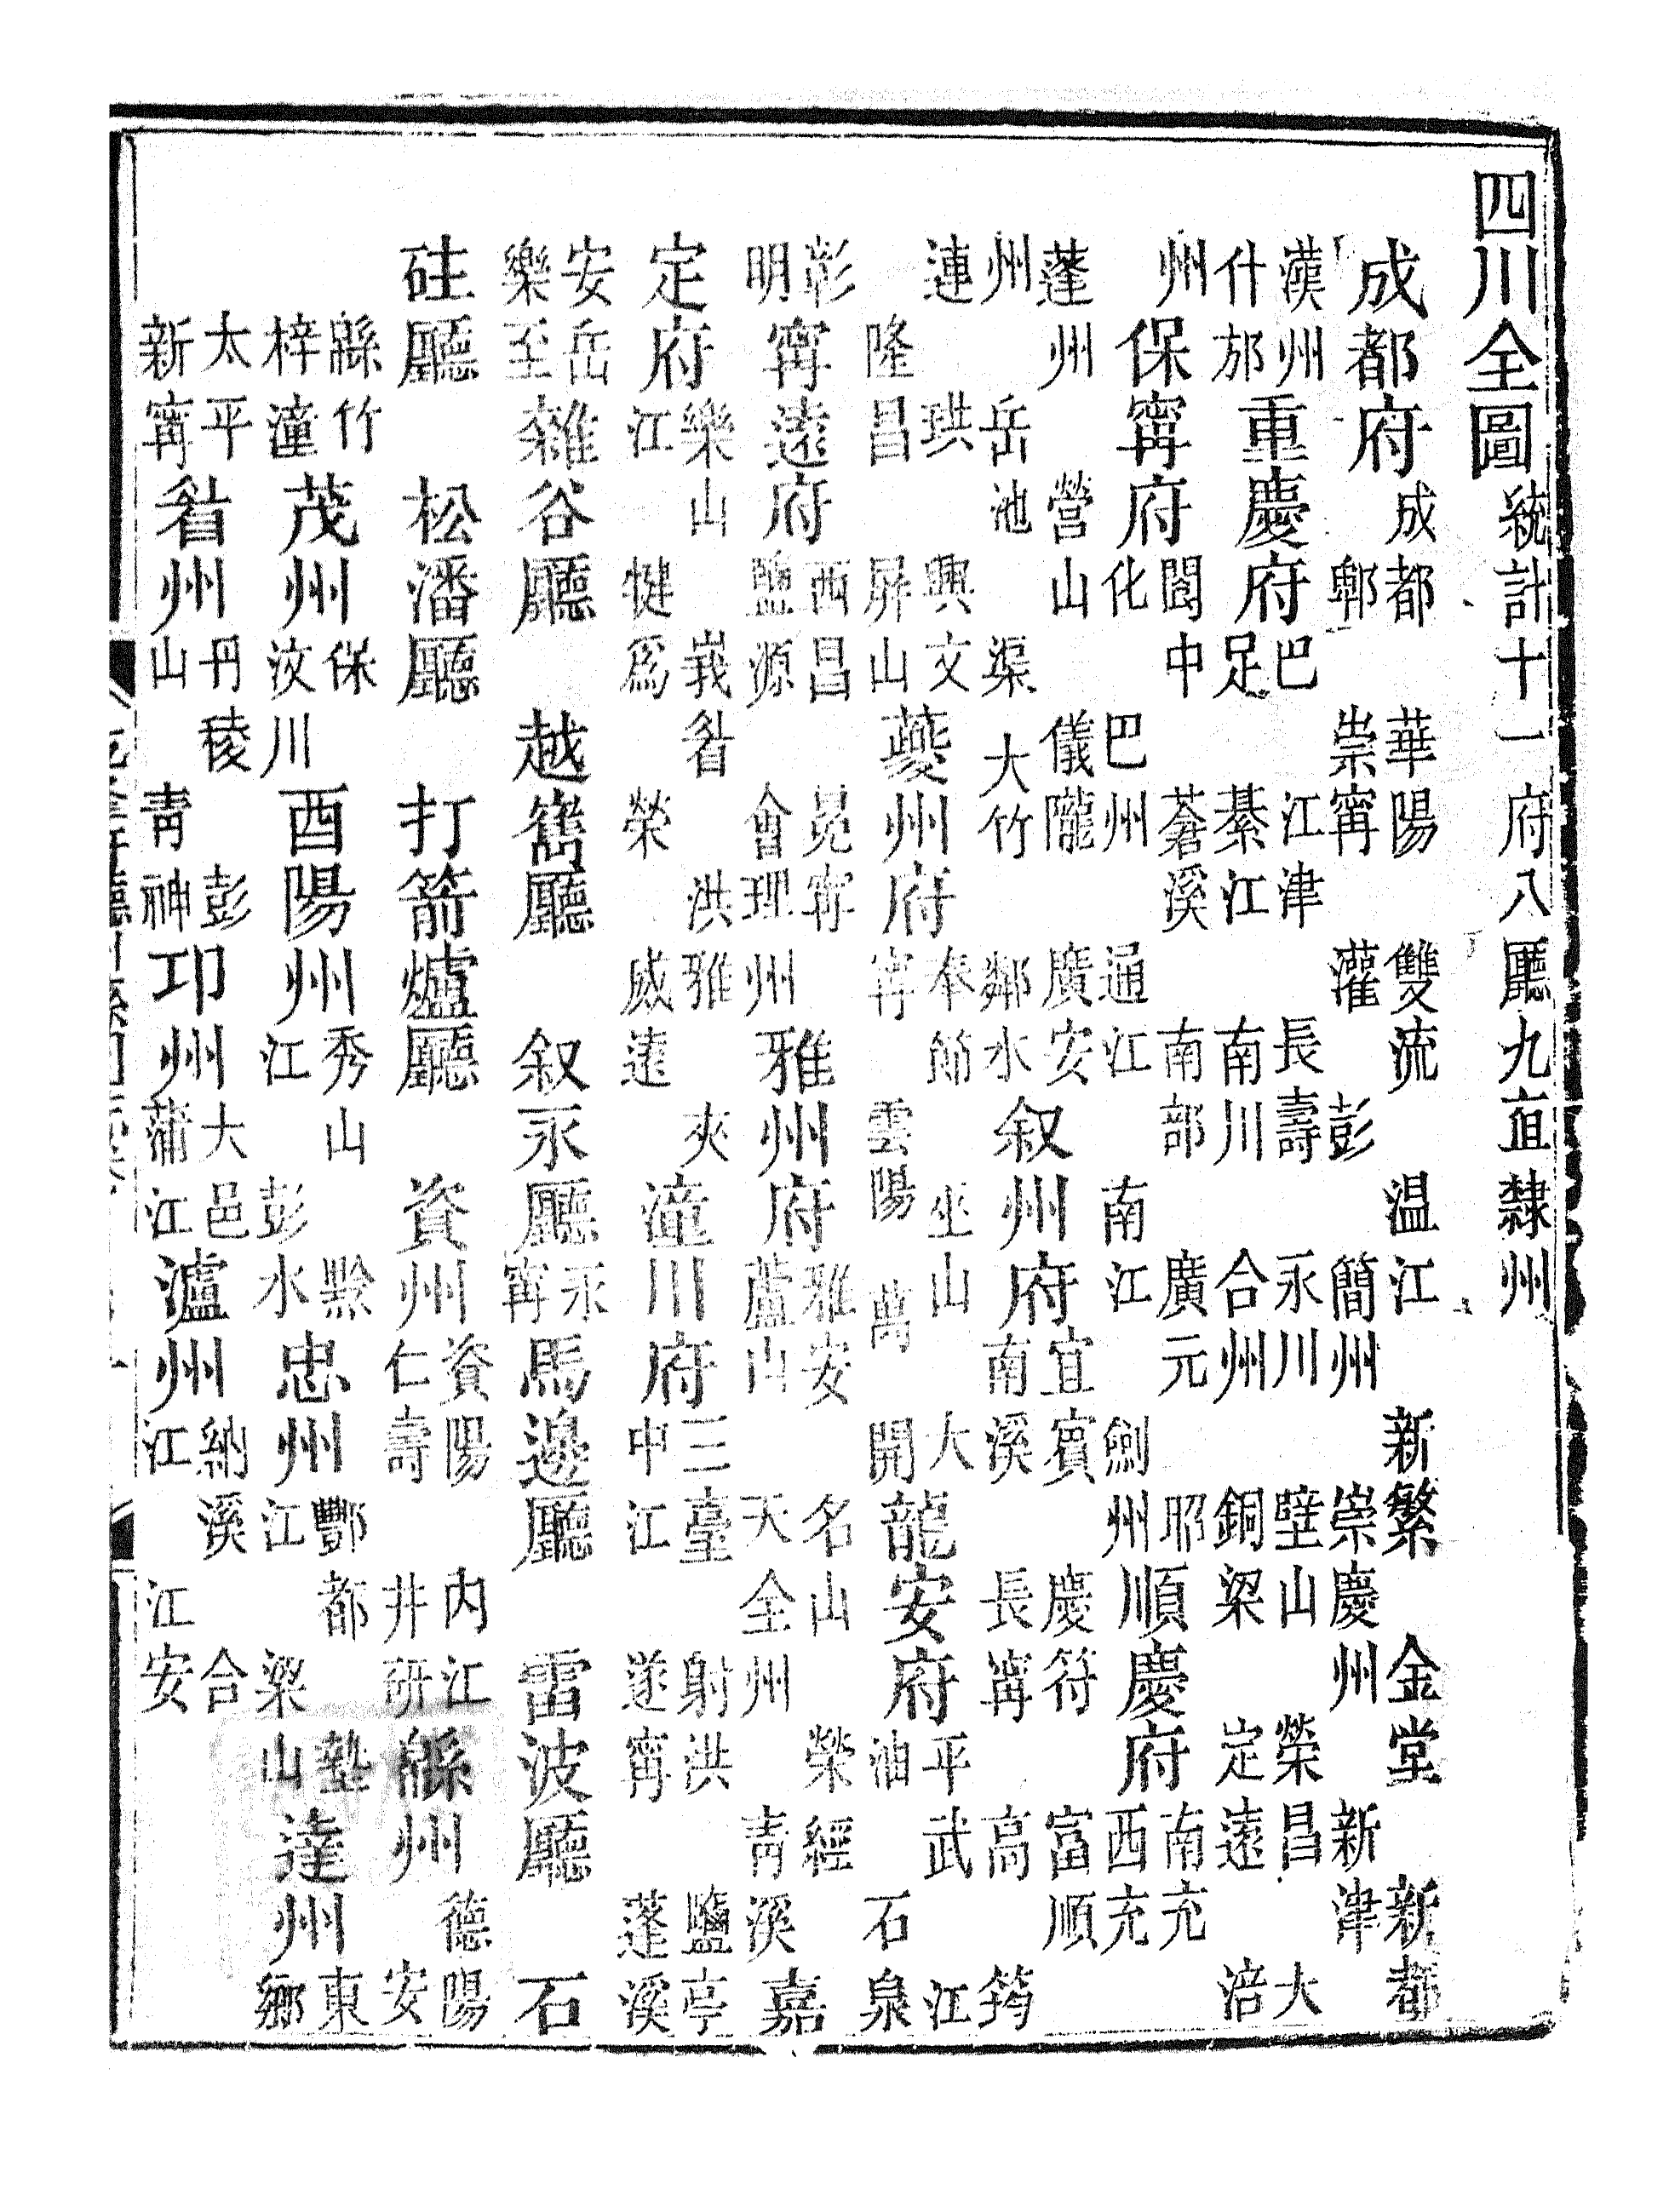 四川全圖統計十一府八廳九直隸州
成都府成都 華陽 雙流 温江 新繁 金堂 新都郫 崇寧 灌 彭 簡州 崇慶州 新津
漢州什邡重慶府巴 江津 長壽 永川 壁山 榮昌 大足 綦江 南川 合州 銅梁 定遠 涪
州保寧府閬中 蒼溪 南部 廣元 昭化 巴州 通江 南江 劍州順慶府南充西充
蓬州 營山 儀隴 廣安州 岳池 渠 大竹 鄰水叙州府宜賓 慶符 富順南溪 長寧 高 筠
連 珙 興文隆昌 屏山夔州府奉節 巫山 大寧 雲陽 萬 開龍安府平武 江油 石泉
彰明寧遠府西昌 冕寧鹽源 會理州雅州府雅安 名山 榮經蘆山 天全州 青溪嘉
定府樂山 峩眉 洪雅 夾江 犍爲 榮 威遠潼川府三臺 射洪 鹽亭中江 遂寧 蓬溪
安岳樂至雜谷廳 越嶲廳 叙永廳永寧馬邊廳 雷波廳 石
砫廳 松潘廳 打箭爐廳 資州資陽 内江仁壽 井研緜州德陽安
緜竹梓潼茂州保汶川酉陽州秀山 黔江 彭水忠州酆都 墊江 梁山達州東鄉
太平新寧眉州丹稜 彭山 青神邛州大邑蒲江瀘州納溪 合江 江安